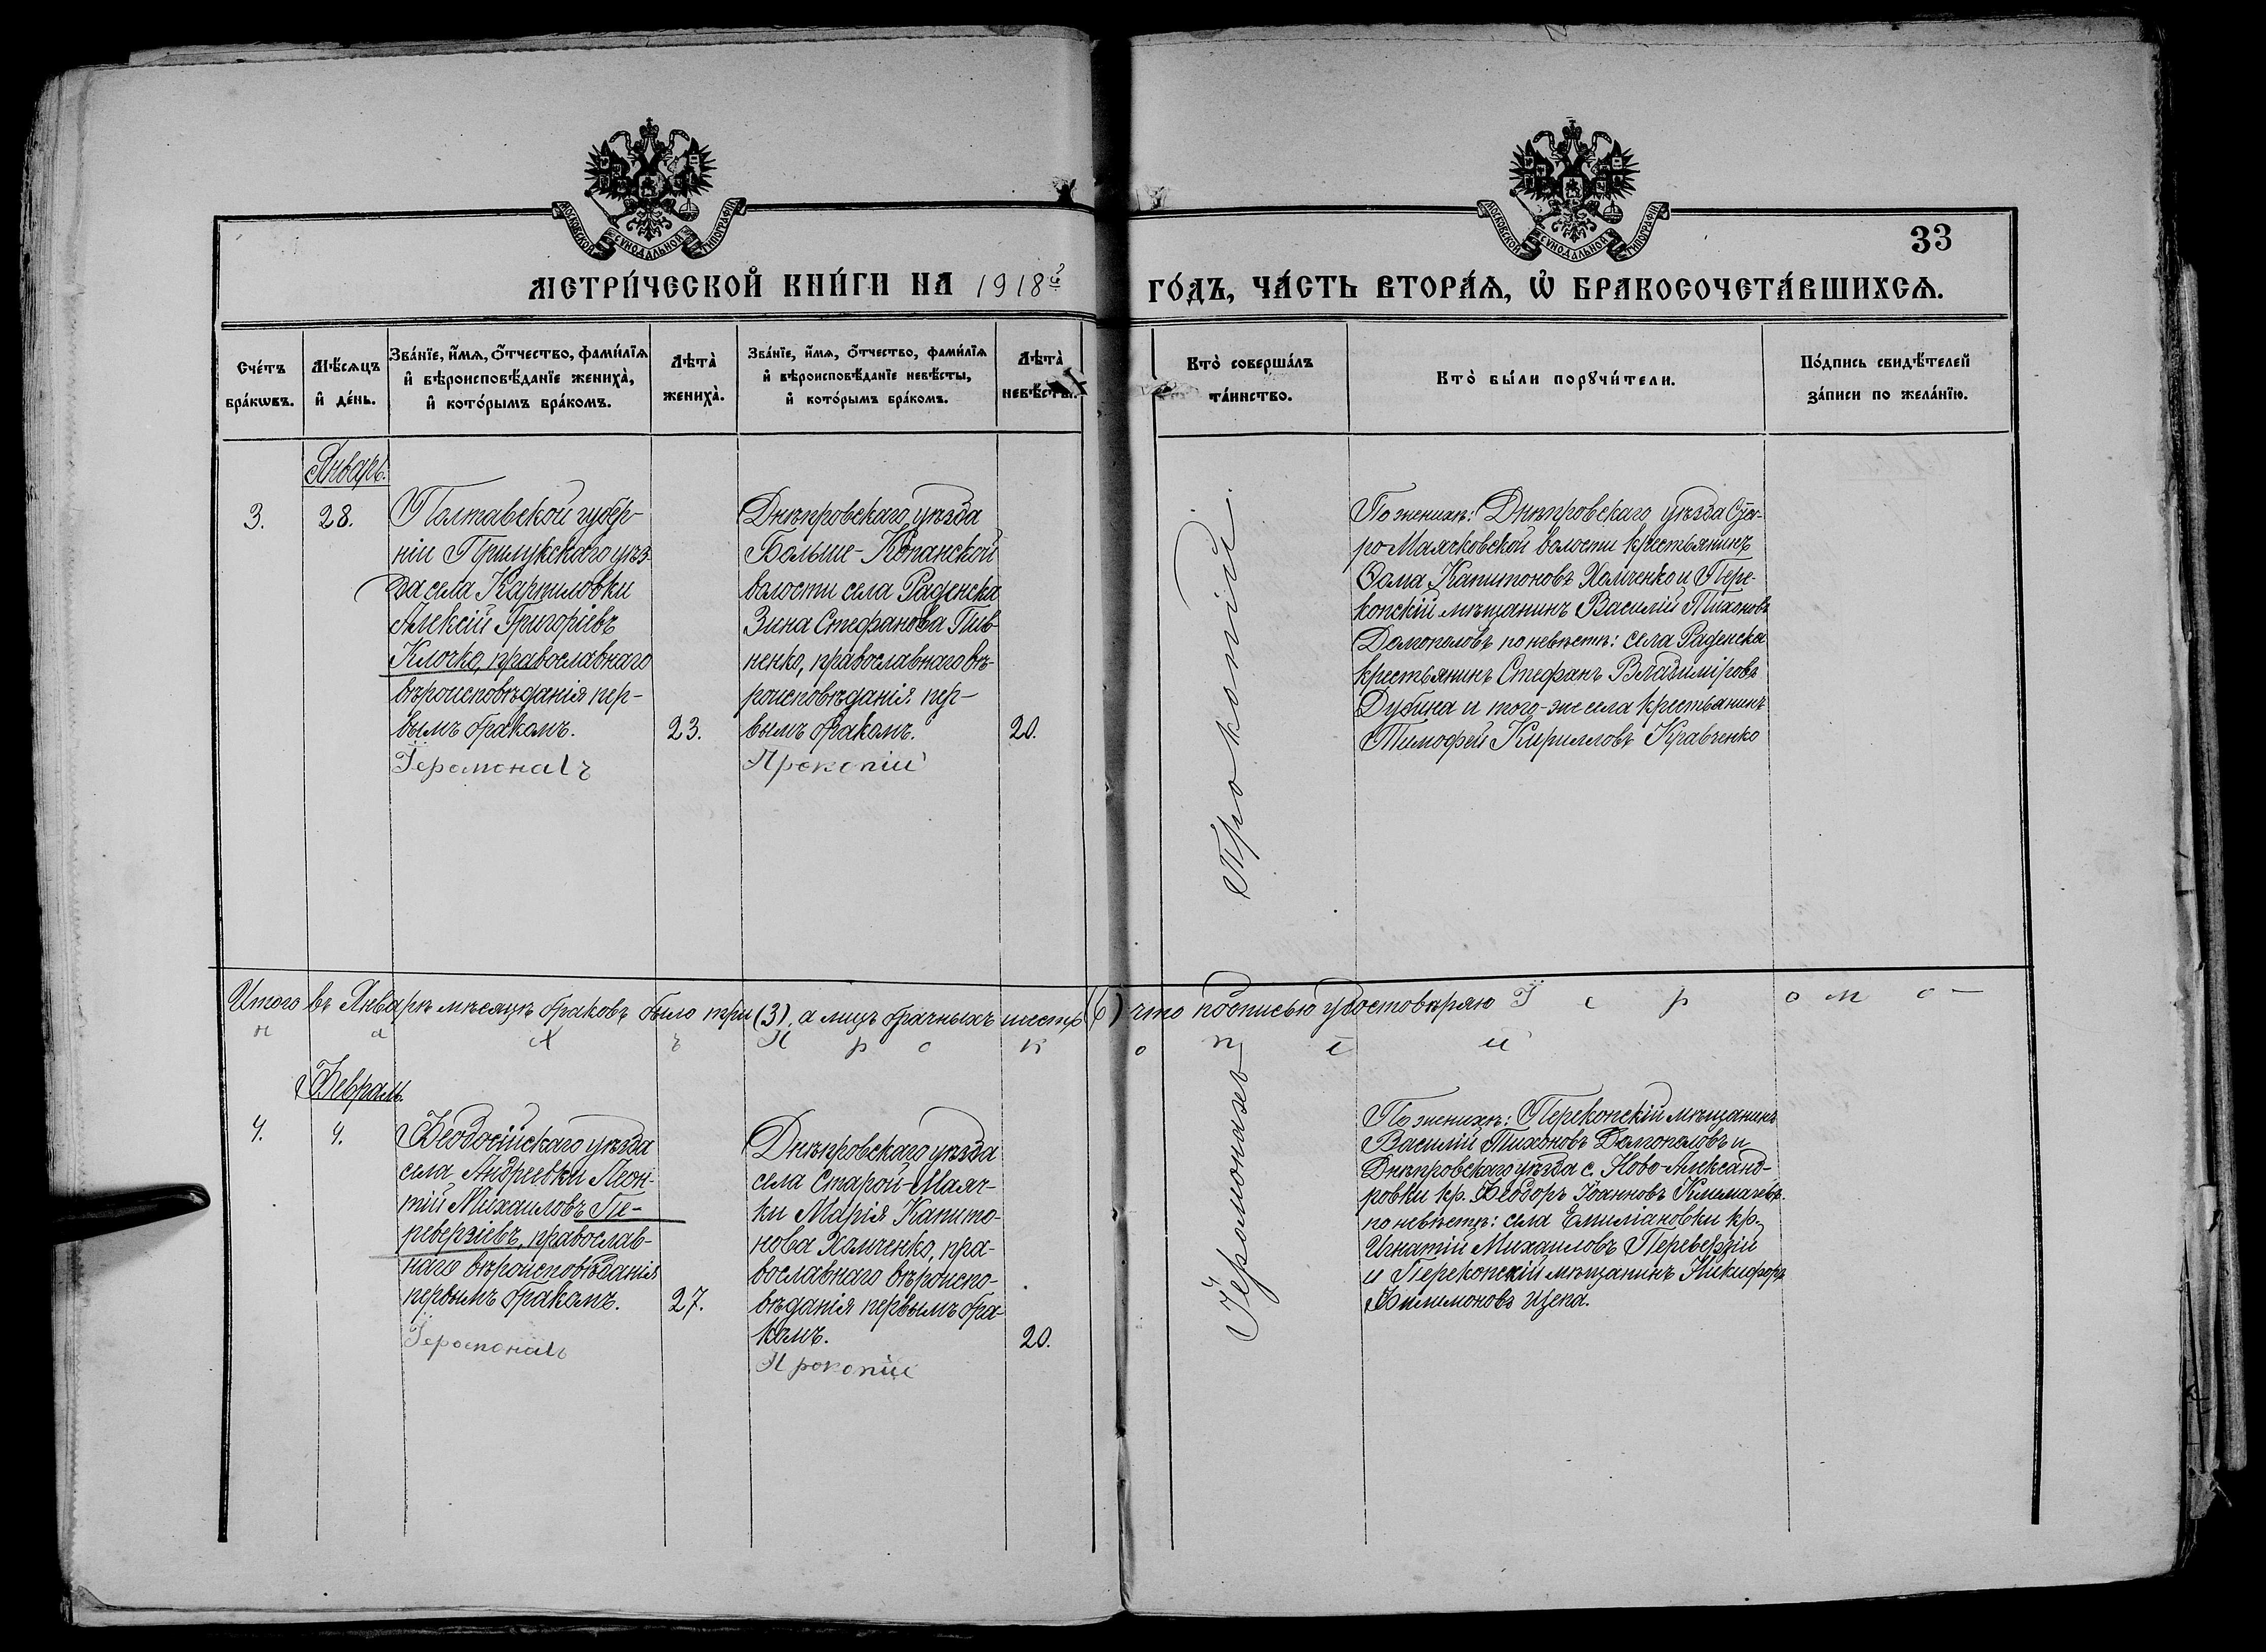 МОСКОВСКОЙ СУНОДАЛЬНОЙ ТИПОГРАФІИ
МОСКОВСКОЙ СУНОДАЛЬНОЙ ТИПОГРАФІИ
33
МЕТРИ́ЧЕСКОЙ КНИ́ГИ НА 1918 г.
ГО́ДЪ, ЧА́СТЬ ВТОРА́Ѧ, Ѡ҆ БРАКОСОЧЕТА́ВШИХСѦ.
Сче́тъ
бра́кѡвъ.
Мѣ́сѧцъ
и҆ де́нь.
Зва́нїе, и҆́мѧ, ѻ҆́тчество, фами́лїѧ
и҆ вѣроисповѣ́данїе жениха̀,
и҆ кото́рымъ бра́комъ.
Лѣта̀
жениха̀.
Зва́нїе, и҆́мѧ, ѻ҆́тчество, фами́лїѧ
и҆ вѣроисповѣ́данїе невѣ́сты,
и҆ кото́рымъ бра́комъ.
Лѣта̀
невѣ́сты.
Кто̀ соверша́лъ
та́инство.
Кто̀ бы́ли порꙋчи́тели.
По́дпись свидѣ́телей
за́писи по жела́нїю.
Январь.
3.
28.
Полтавской губер-
ніи Прилукскаго уѣз-
да села Карпиловки
Алексій Григоріевъ
Клочко, православнаго
вѣроисповѣданія пер-
вымъ бракомъ.
Іеромонахъ
23.
Днѣпровскаго уѣзда
Больше-Копанской
волости села Раденска
Зина Стефанова Пив-
ненко, православнаго вѣ-
роисповѣданія пер-
вымъ бракомъ.
Прокопій
20.
Іеромонахъ Прокопій.
По женихѣ: Днѣпровскаго уѣзда Ста-
ро Маячковской волости крестьянинъ
Ѳома Капитоновъ Холченко и Пере-
копскій мѣщанинъ Василій Тихоновъ
Долгополовъ по невѣстѣ: села Раденска
крестьянинъ Стефанъ Владиміровъ
Дубина и того-же села крестьянинъ
Тимофей Кирилловъ Кравченко
Итого въ Январѣ мѣсяцѣ браковъ было три (3), а лицъ брачныхъ шесть (6) что подписью удостовѣряю Іеромо-
нахъ Прокопій
Февраль.
4.
4.
Ѳеодосійскаго уѣзда
села Андреевки Леон-
тій Михаиловъ Пе-
реверзіевъ, православ-
наго вѣроисповѣданія
первымъ бракомъ.
Іеромонахъ
27.
Днѣпровскаго уѣзда
села Старой-Маяч-
ки Марія Капито-
нова Холченко, пра-
вославнаго вѣроиспо-
вѣданія первымъ бра-
комъ.
Прокопій
20.
По женихѣ: Перекопскій мѣщанинъ
Василій Тихоновъ Долгополовъ и
Днѣпровскаго уѣзда с. Ново-Александ-
ровки кр. Ѳеодоръ Іоанновъ
по невѣстѣ: села Емиліановки кр.
Игнатій Михаиловъ Переверзій
и Перекопскій мѣщанинъ Никифоръ
Филимоновъ Щепа.